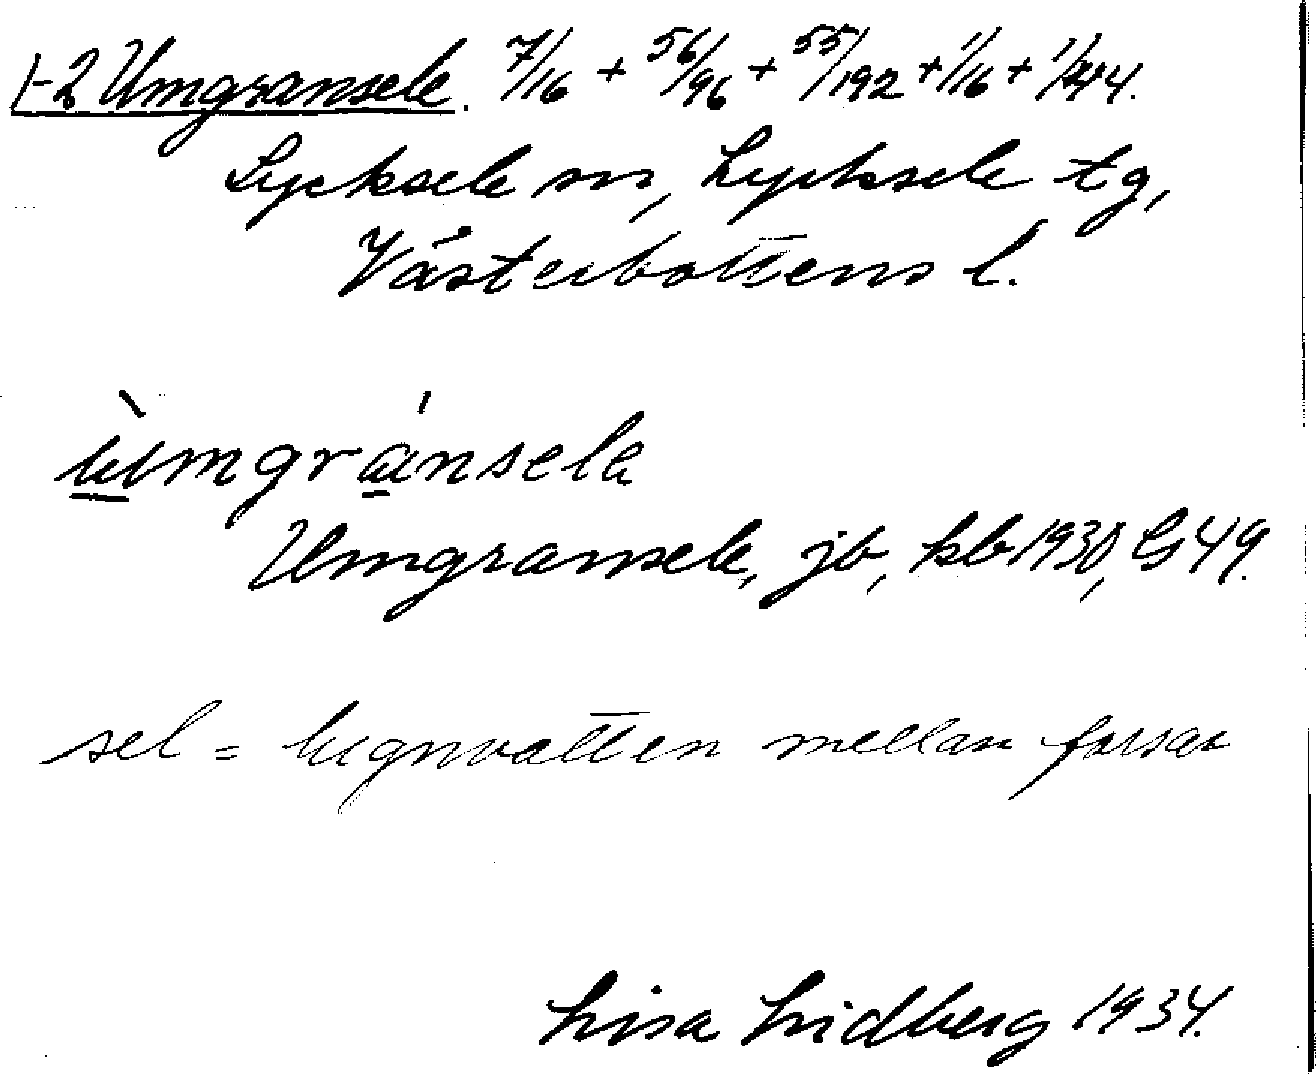 1-2 Umgransele. 7/16 + 56/96 + 55/192 + 1/16 + 1/144.
Lycksele sn, Lycksele tg,
Västerbottens l.
ùmgránsela
Umgransele, jb, kb 1930, G 49.
sel = lugnvatten mellan forsar
Lisa Lidberg 1934.